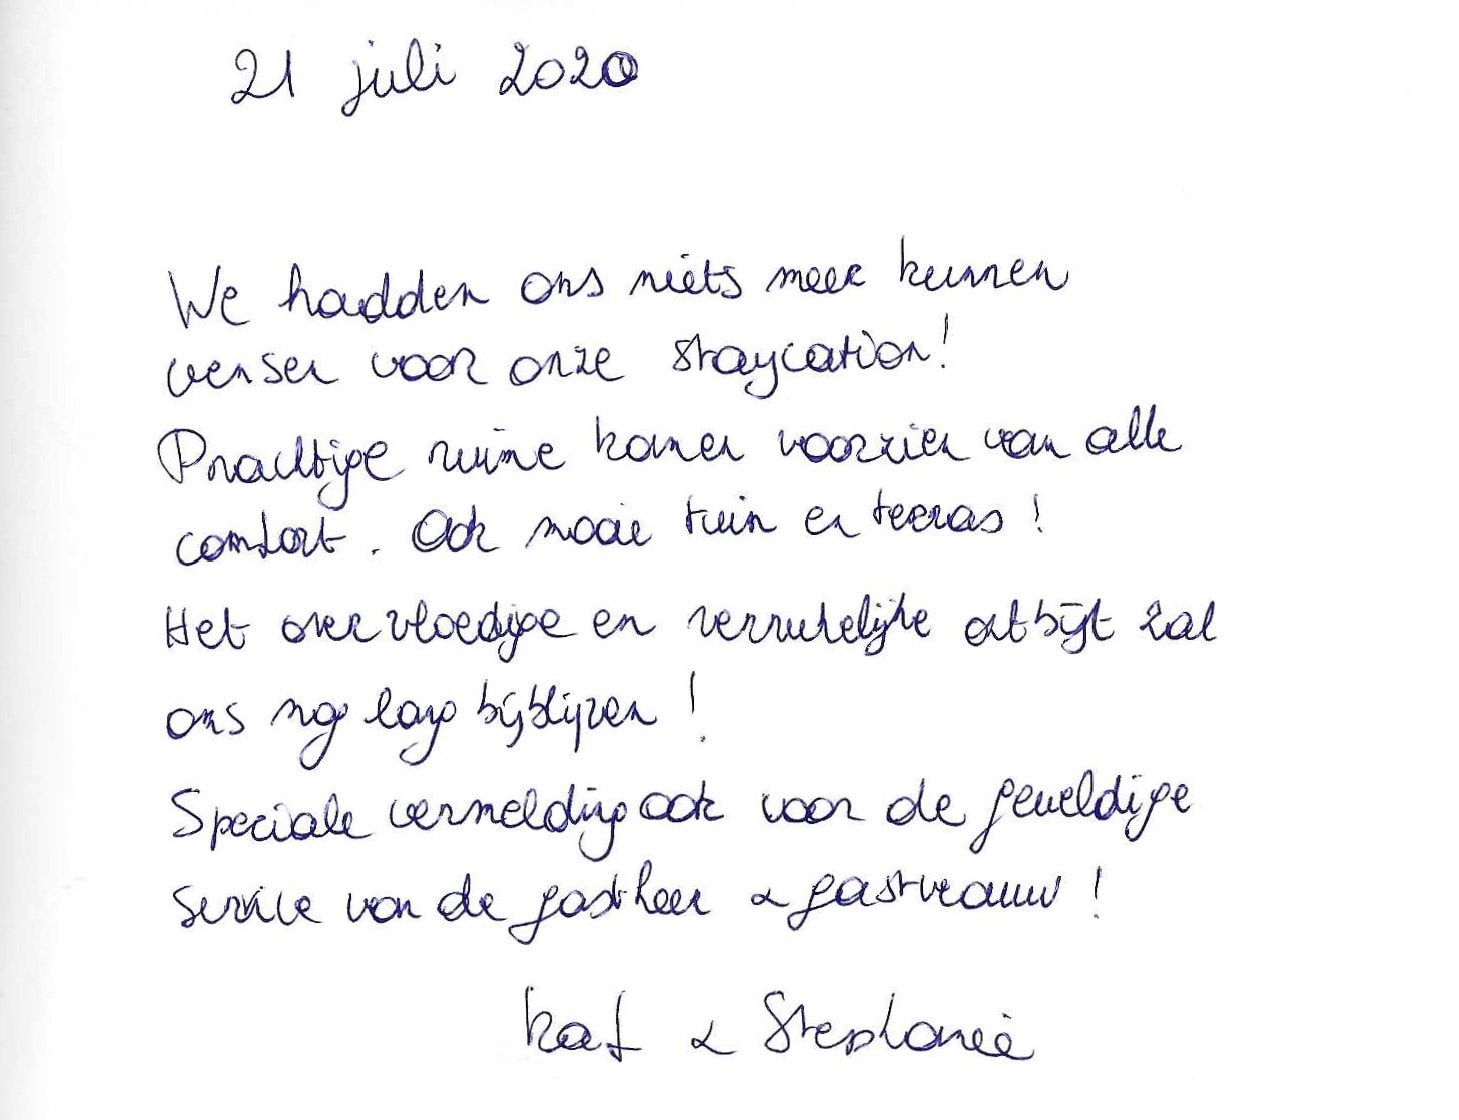 21 juli 2020
We hadden ons niets meer kunnen
wensen voor onze staycation!
Prachtige ruime kamer voorzien van alle
comfort. Ook mooie tuin en terras!
Het overvloedige en verrukelijke ontbijt zal
ons nog lang bijblijven!
Speciale vermelding ook voor de geweldige
service van de gastheer & gastvrouw!
Kat & Stephanie